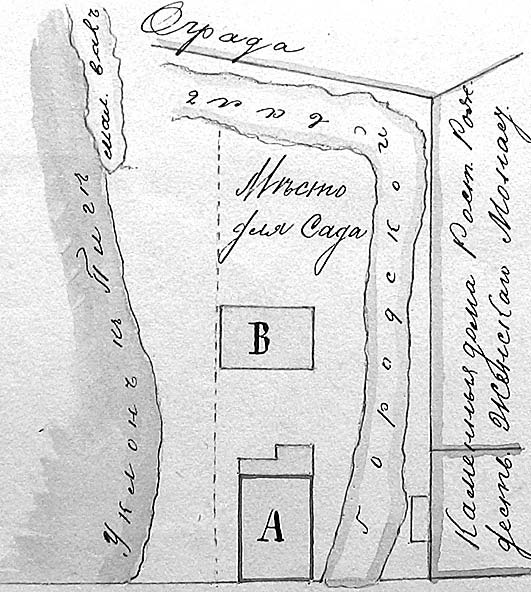 Ограда
мал. валъ
Уклонъ къ Пигѣ
Городской валъ
Мѣсто
для Сада
В
А
Каменныя дома Рост. Рож-
деств. Женскаго Монаст.